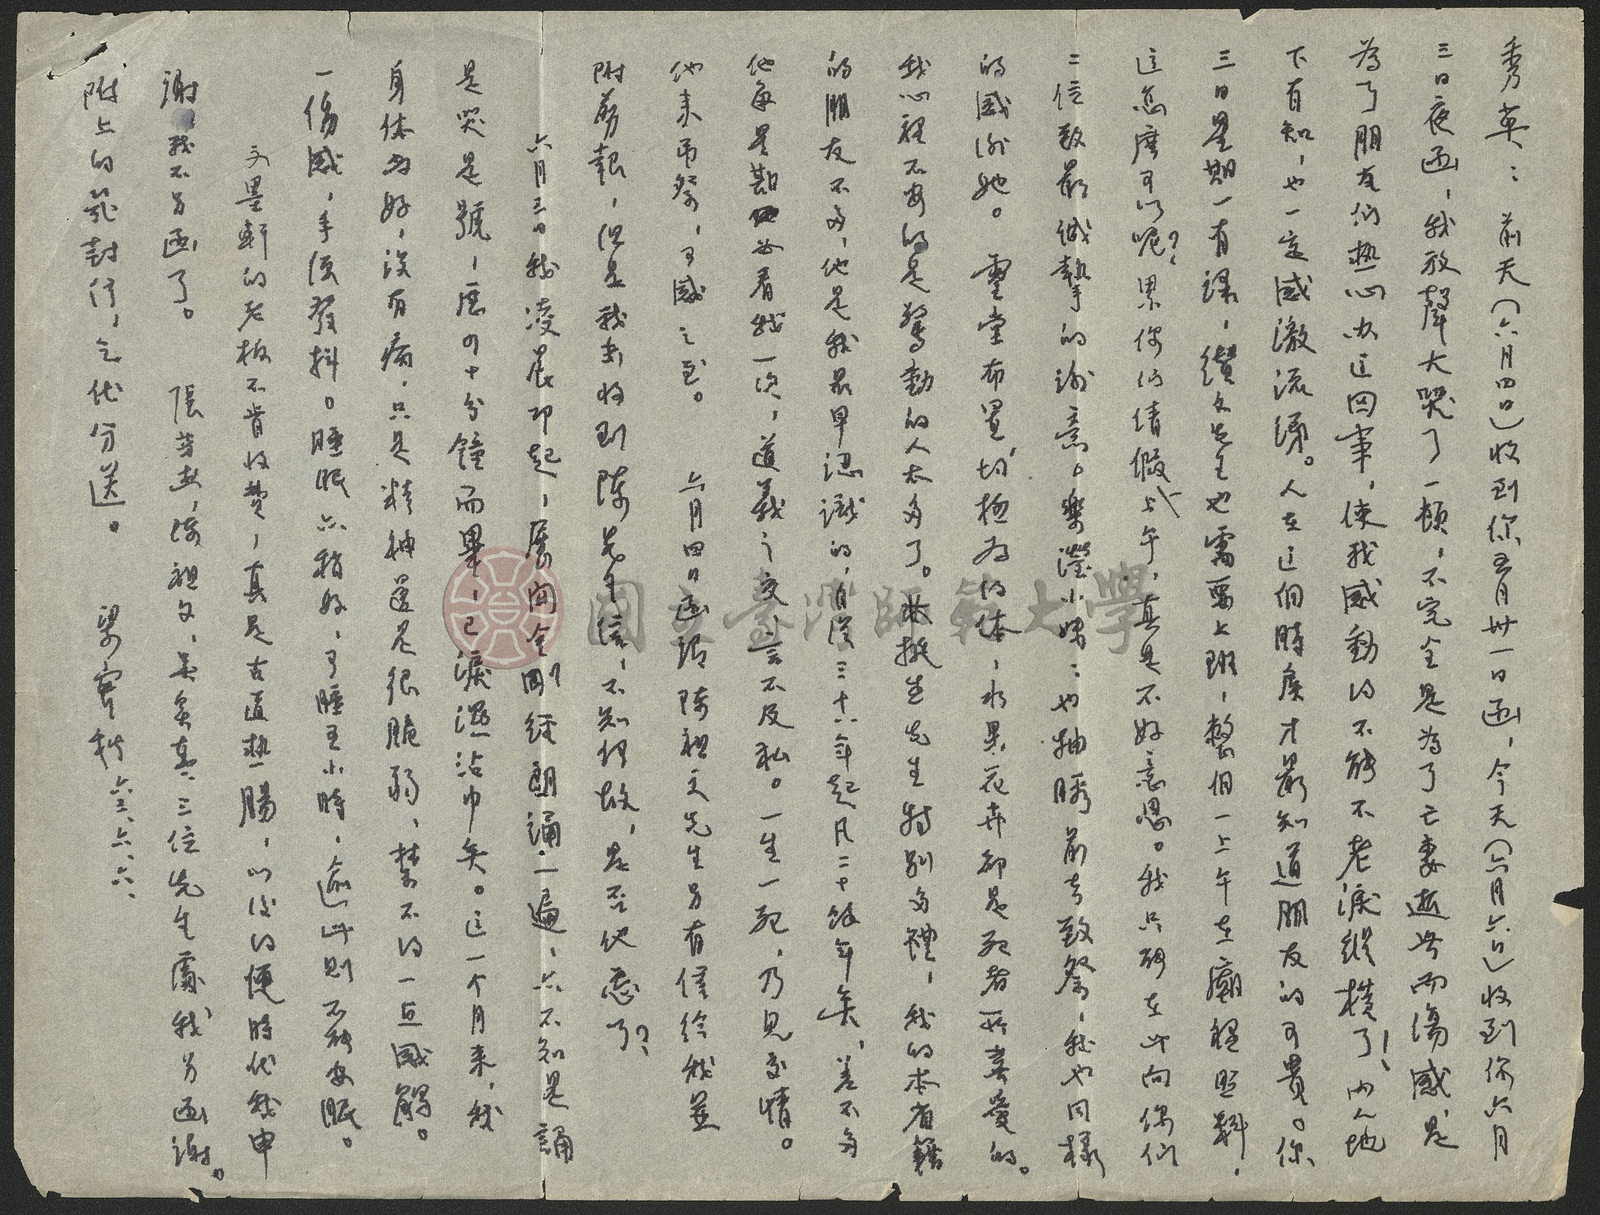 秀英：前天（六月四日）收到你五月卅一日函，今天（六月六日）收到你六月
三日夜函，我放聲大哭了一頓，不完全是為了亡妻逝世而傷感，是
為了朋友們熱心办這囘事，使我感動的不能不老淚縱橫了！內人地
下有知，也一定感激流涕。人在這個時候才最知道朋友的可貴。你
三日星期一有課，纘文先生也需要上班，整個一上午在廟裡照料，
這怎麼可以呢？累你们请假上午，真是不好意思。我只好在此向你们
二位致最誠摯的謝意。樂瀅小妹：也抽暇前去致祭，我也同樣
的感謝她。靈堂布置，切極為得体，水果花卉都是死者所喜爱的。
我心裡不安的是驚動的人太多了。林挺生先生特别多禮，我的本省籍
的朋友不多，他是我最早認識的，自從三十八年起凡二十餘年矣，差不多
他每星期必看我一次，道義之交，言不及私。一生一死，乃見交情。
他来吊祭，可感之至。　六月四日函謂陳祖文先生另有信给我並
附剪報，但是我未收到陳先生信，不知何故，是否他忘了？
六月三日我凌晨即起，展開金剛經朗誦一遍，亦不知是誦
是哭是號，歷四十分鐘而畢，已淚濕沾巾矣。這一个月来，我
身体尚好，沒有病，只是精神還是很脆弱，禁不得一点感觸。
一傷感，手便發抖。睡眠亦稍好，可睡五小時，逾此則不能安眠。
文墨軒的老板不肯收費，真是古道熱腸，以後得便時代我申
謝，我不另函了。　張芳杰，陳祖文，吳奚真，三位先生處，我另函謝。
附上的几封信，乞代分送。　梁實秋 六三、六、六、
國立臺灣師範大學